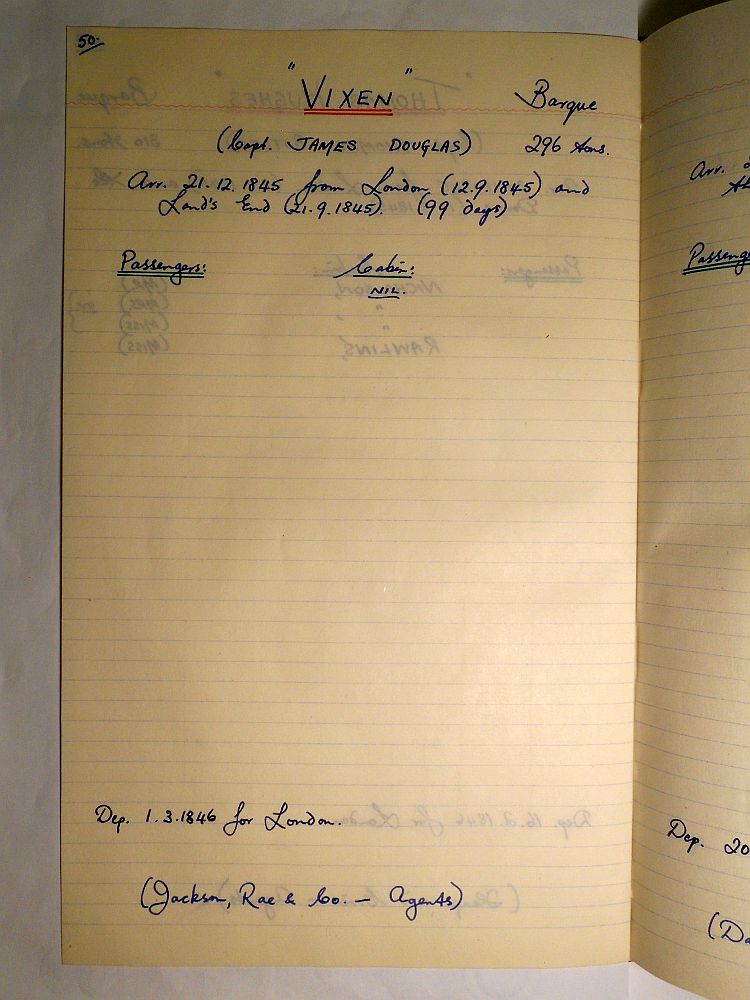 50.
"VIXEN" Barque
(Capt. JAMES DOUGLAS) 296 tons.
Arr. 21.12.1845 from London (12.9.1845) and
Land's End (21.9.1845). (99 Days)
Passengers: Cabin:
NIL.
Dep. 1.3.1846 for London.
(Jackson, Rae & Co. — Agents)
Arr.
Passeng
Dep. 20
(Da